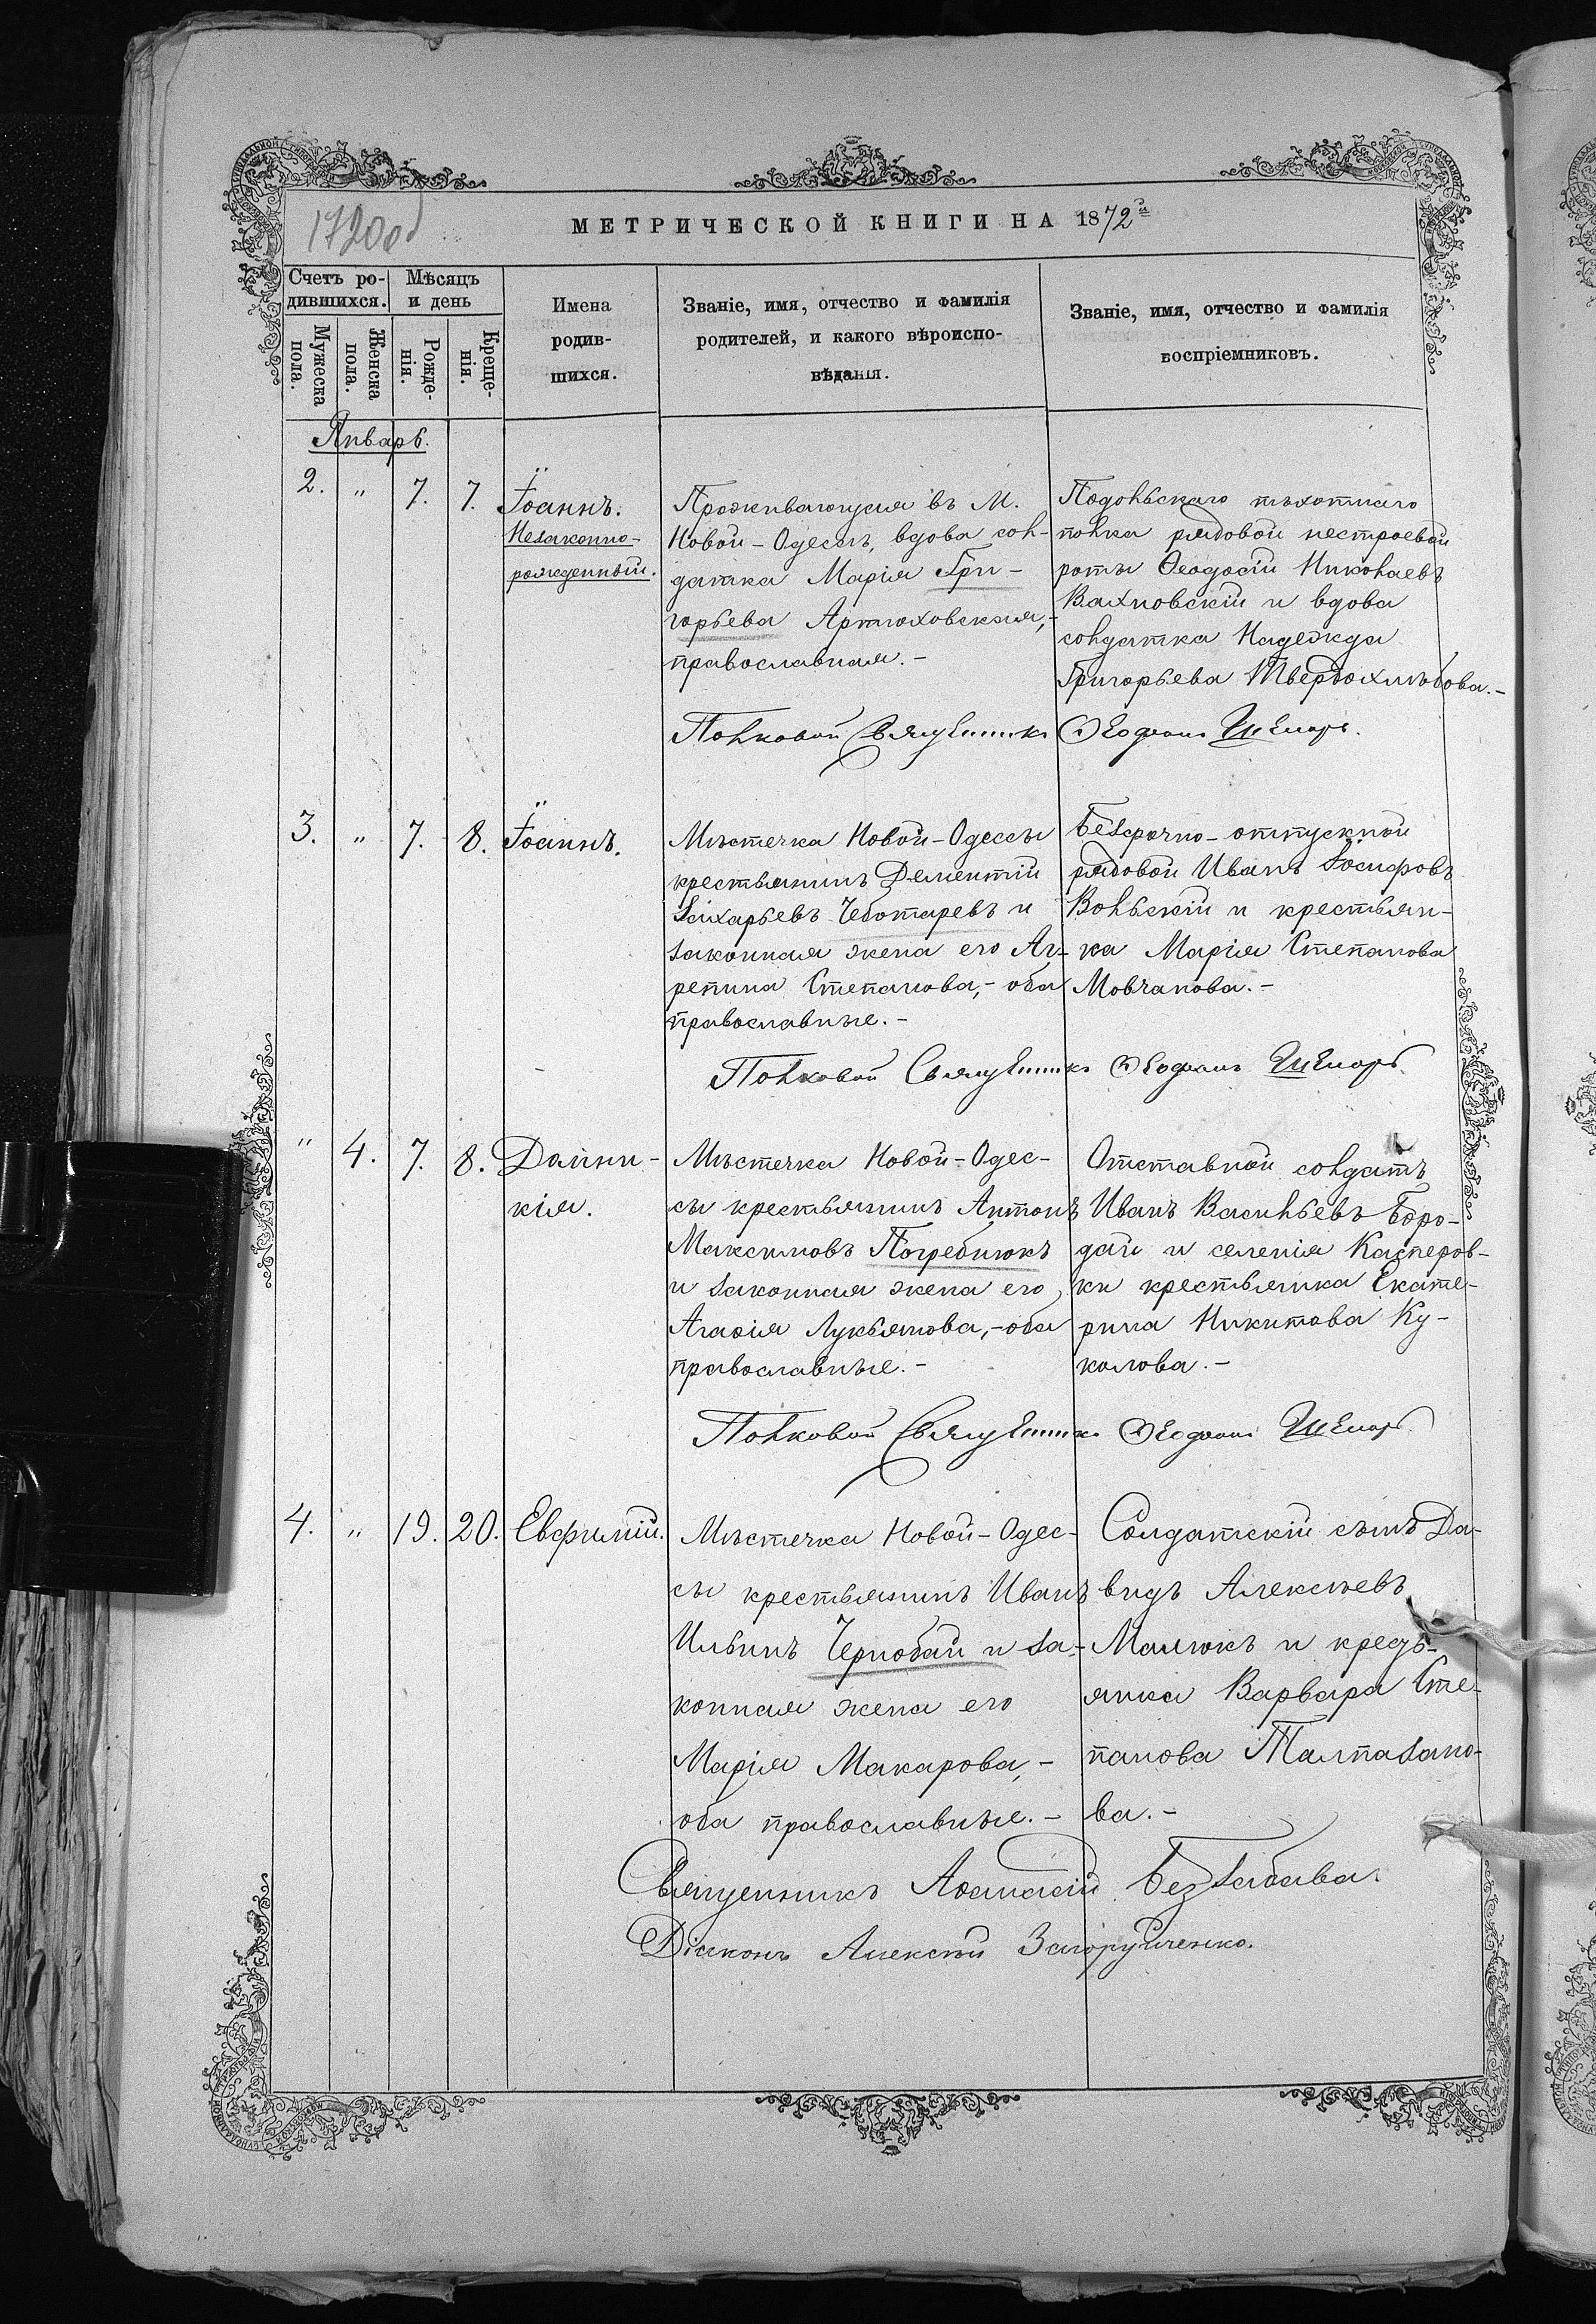 1720об
МЕТРИЧЕСКОЙ КНИГИ НА 1872й
Счетъ ро-
дившихся.
Мѣсяцъ
и день
Мужеска
пола.
Женска
пола.
Рожде-
нія.
Креще-
нія.
Имена
родив-
шихся.
Званіе, имя, отчество и фамилія
родителей, и какого вѣроиспо-
вѣданія.
Званіе, имя, отчество и фамилія
воспріемниковъ.
Январь.
2. " 7. 7. Іоаннъ.
Незаконно-
рожденный.
Проживающая въ М.
Новой-Одессѣ, вдова сол-
датка Марія Гри-
горьева Артюховская,-
православная.-
Подольскаго пѣхотнаго
полка рядовой нестроевой
роты Ѳеодосій Николаевъ
Вахновскій и вдова
солдатка Надежда
Григорьева Твердохлѣбова.-
Полковой Священникъ
3. " 7. 8. Іоаннъ.
Мѣстечка Новой-Одессы
крестьянинъ Дементій
Захарьевъ Чеботаревъ и
законная жена его Аг-
репина Степанова,- оба
православные.-
Безсрочно-отпускной
рядовой Иванъ Іосифовъ
Вольскій и крестьян-
ка Марія Степанова
Мовчанова.-
Полковой Священникъ
" 4. 7. 8. Домни-
кія.
Мѣстечка Новой-Одес-
сы крестьянинъ Антонъ
Максимовъ Погребнюкъ
и законная жена его
Агафія Лукьянова,- оба
православные.-
Отставной солдатъ
Иванъ Васильевъ Боро-
дай и селенія Касперов-
ки крестьянка Екате-
рина Никитова Ку-
колова.-
Полковой Священникъ
4. " 19. 20. Евфимій.
Мѣстечка Новой-Одес-
сы крестьянинъ Иванъ
Ильинъ Чернобай и за-
конная жена его
Марія Макарова,-
оба православные.-
Солдатскій сынъ Да-
видъ Алексѣевъ
Малюкъ и кресть-
янка Варвара Сте-
панова Талпазано-
ва.-
Священникъ Афанасій Беззабава
Діаконъ Алексѣй Загоруйченко.